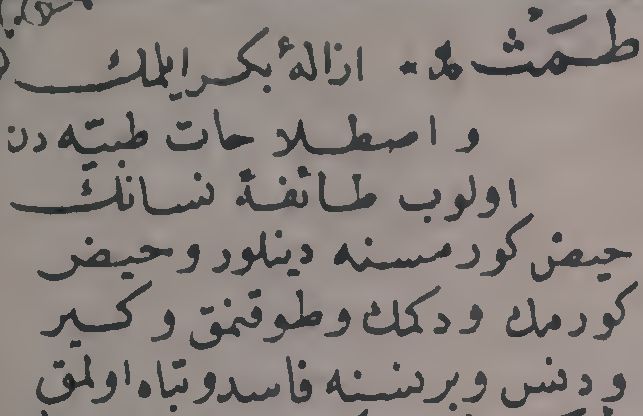 طَمَثْ مذ * ازالهٔ بكر ايلمك
و اصطلاحات طبيّه دن
اولوب طائفهٔ نسانك
حيض كورمسنه دينلور و حيض
كورمك و دكمك و طوقنمق و كير
و دنس و برنسنه فاسد و تباه اولمق